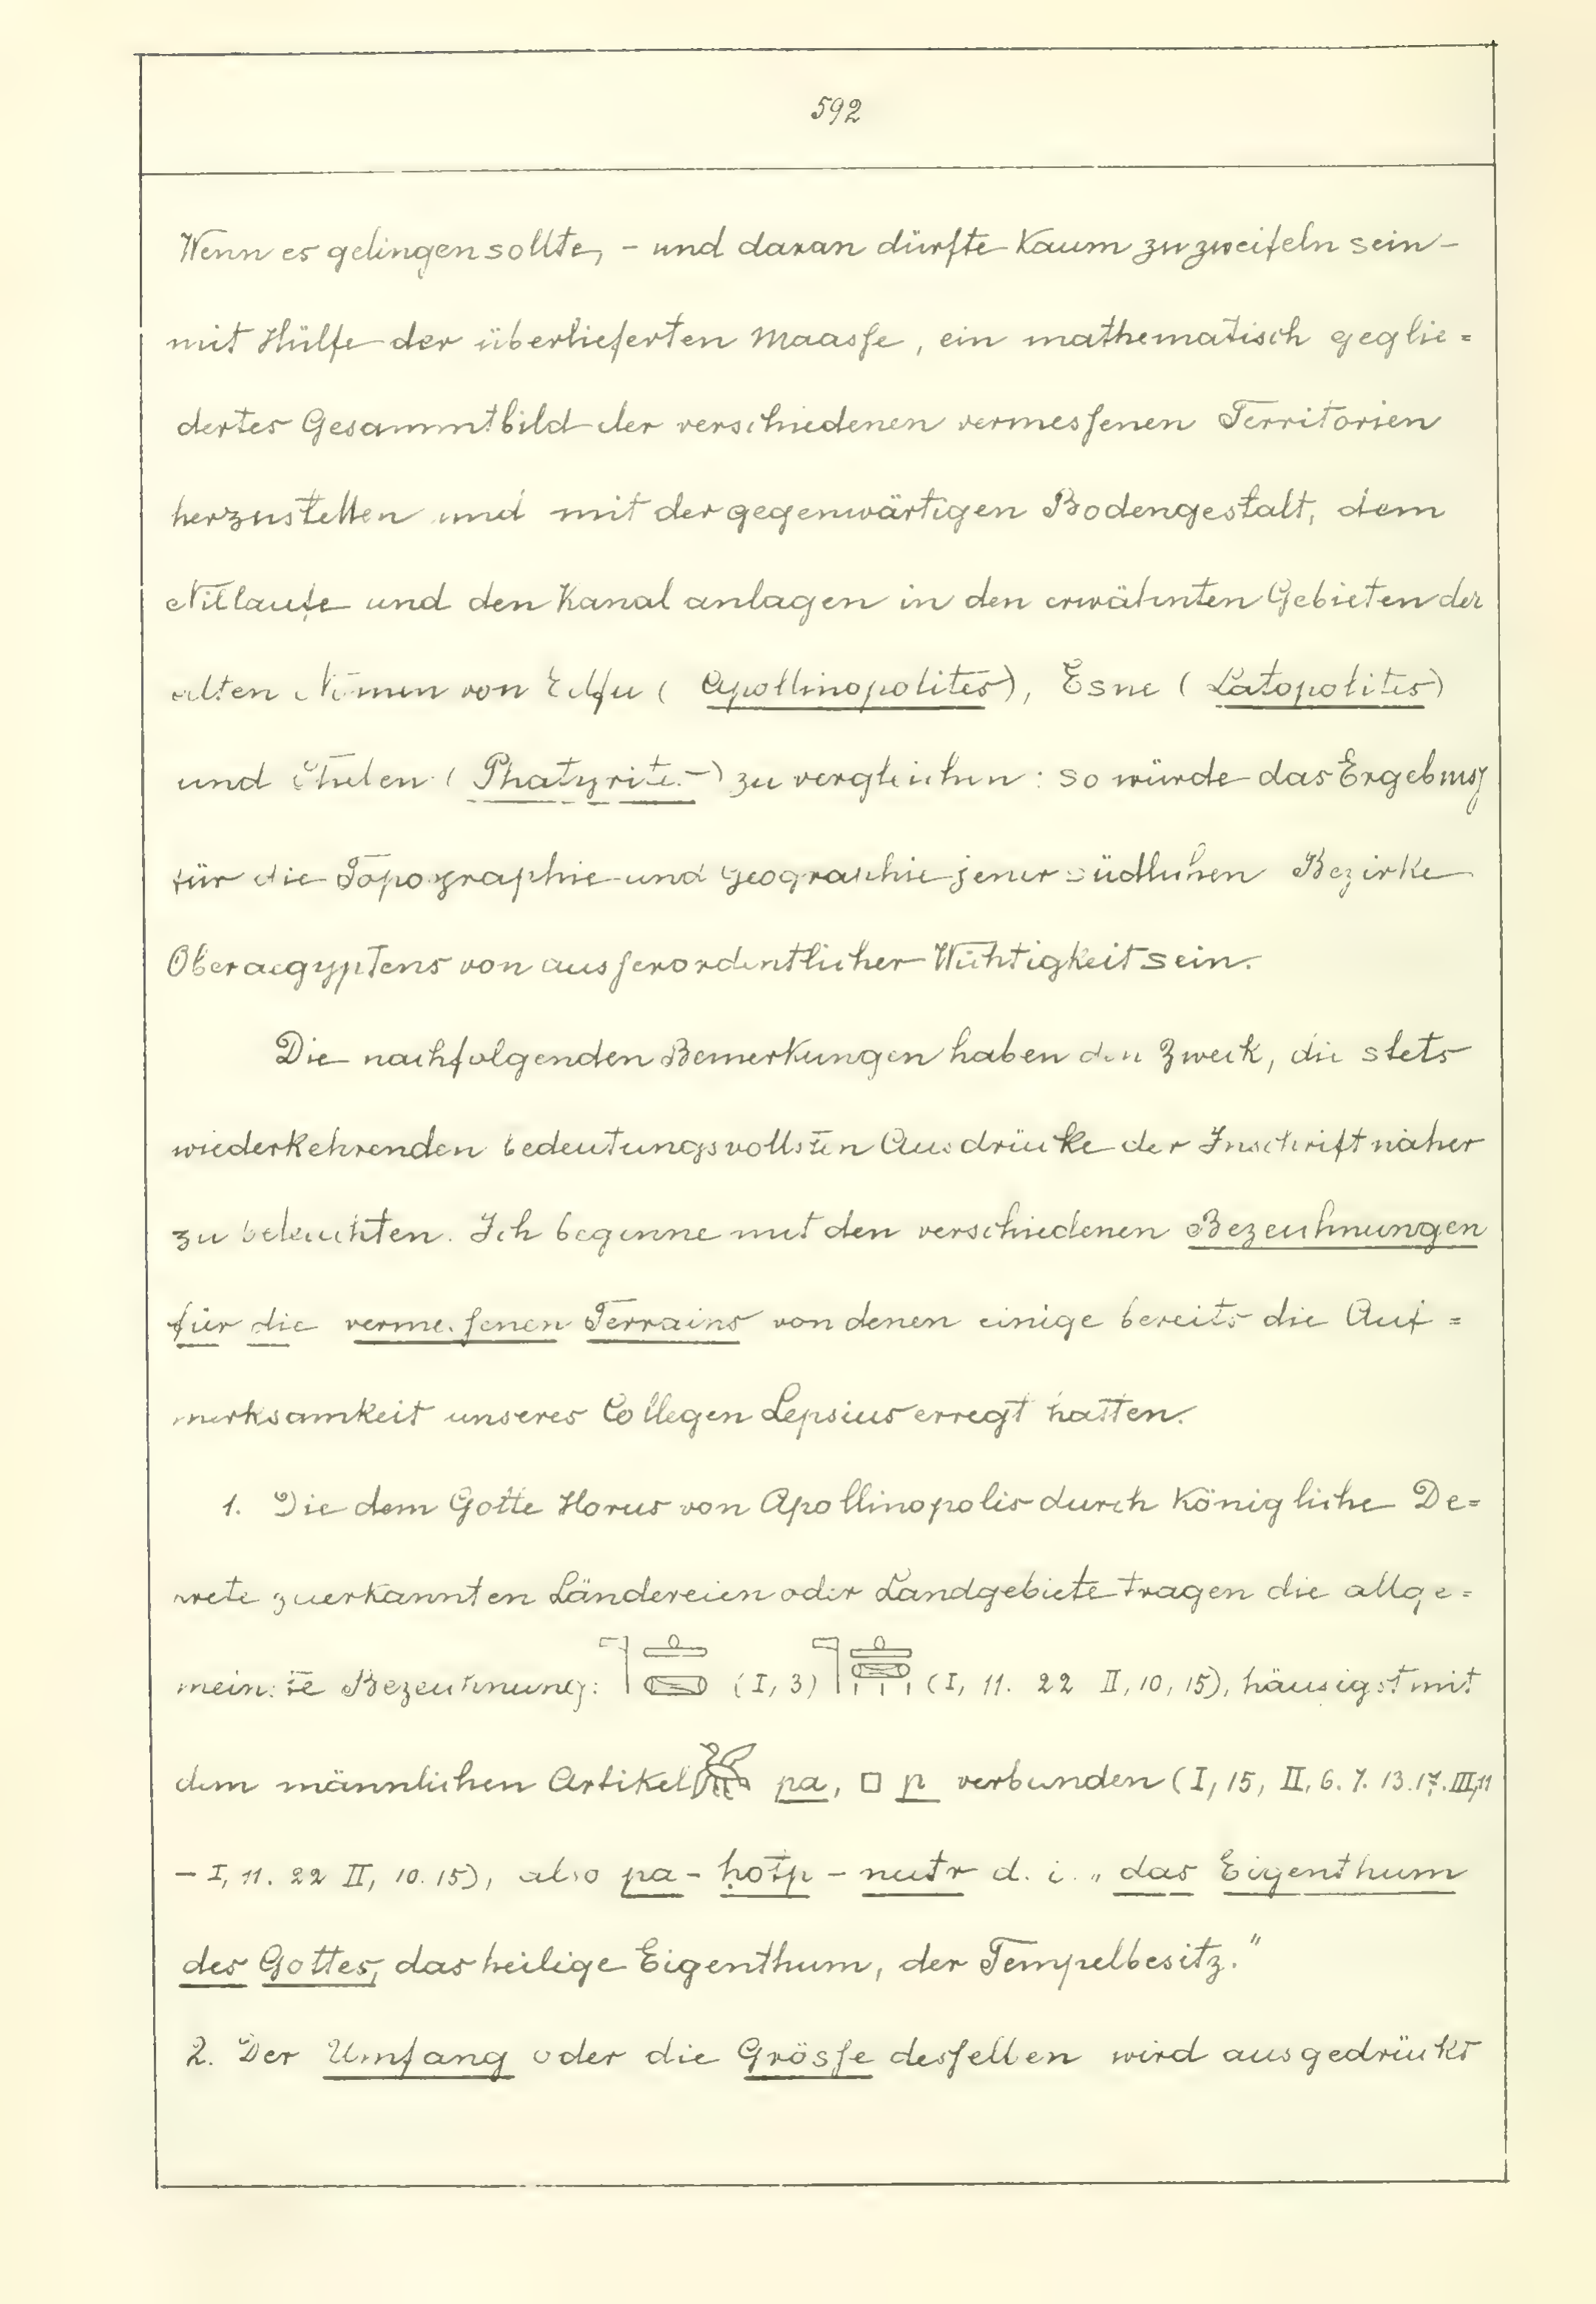 592
Wenn es gelingen sollte, - und daran dürfte kaum zu zweifeln sein -
mit Hülfe der überlieferten Maasse, ein mathematisch geglie=
dertes Gesammtbild der verschiedenen vermessenen Territorien
herzustellen und mit der gegenwärtigen Bodengestalt, dem
Nillaufe und den Kanalanlagen in den erwähnten Gebieten der
alten Nomen von Edfu (Apollinopolites), Esne (Latopolites)
und Theben (Phatyrites) zu vergleichen: so würde das Ergebniss
für die Topographie und Geographie jener südlichen Bezirke
Oberaegyptens von ausserordentlicher Wichtigkeit sein.
Die nachfolgenden Bemerkungen haben den Zweck, die stets
wiederkehrenden bedeutungsvollsten Ausdrücke der Inschrift näher
zu beleuchten. Ich beginne mit den verschiedenen Bezeichnungen
für die vermessenen Terrains von denen einige bereits die Auf=
merksamkeit unseres Collegen Lepsius erregt hatten.
1. Die dem Gotte Horus von Apollinopolis durch Königliche De=
crete zuerkannten Ländereien oder Landgebiete tragen die allge=
meinste Bezeichnung: 𓊹𓊵 (I, 3) (I, 11. 22 II, 10, 15), häufigst mit
dem männlichen Artikel 𓅮 pa, 𓊪 p verbunden (I, 15, II, 6. 7. 13. 17. III, 11
- I, 11. 22 II, 10. 15), also pa - ḥotp - nutr d. i. „das Eigenthum
des Gottes, das heilige Eigenthum, der Tempelbesitz."
2. Der Umfang oder die Grösse desselben wird ausgedrückt